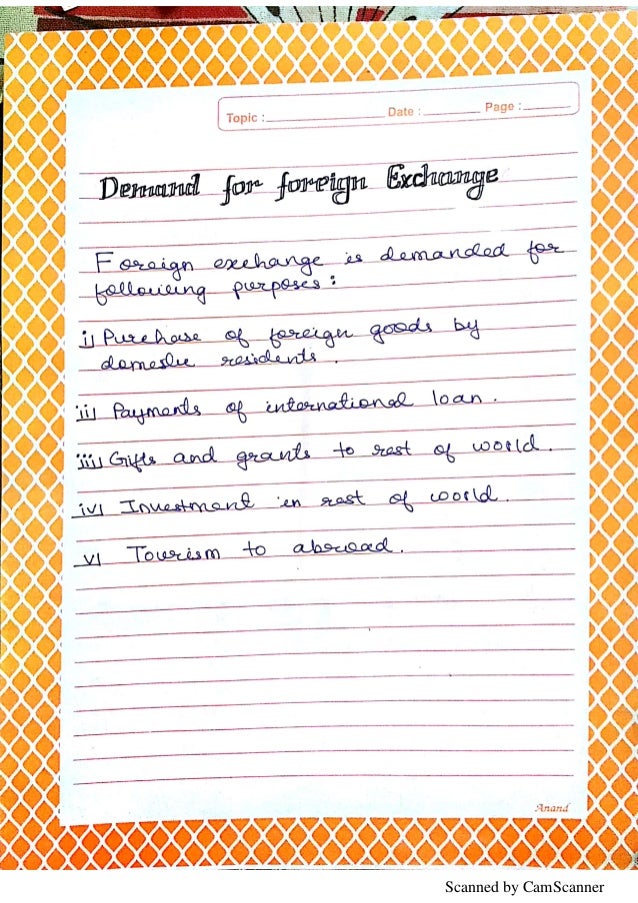 Topic : Date : Page :
Demand for foreign Exchange
Foreign exchange is demanded for
following purposes :
i) Purchase of foreign goods by
domestic residents .
ii) Payments of international loan .
iii) Gifts and grants to rest of world .
iv) Investment in rest of world .
v) Tourism to abroad .
Anand
Scanned by CamScanner